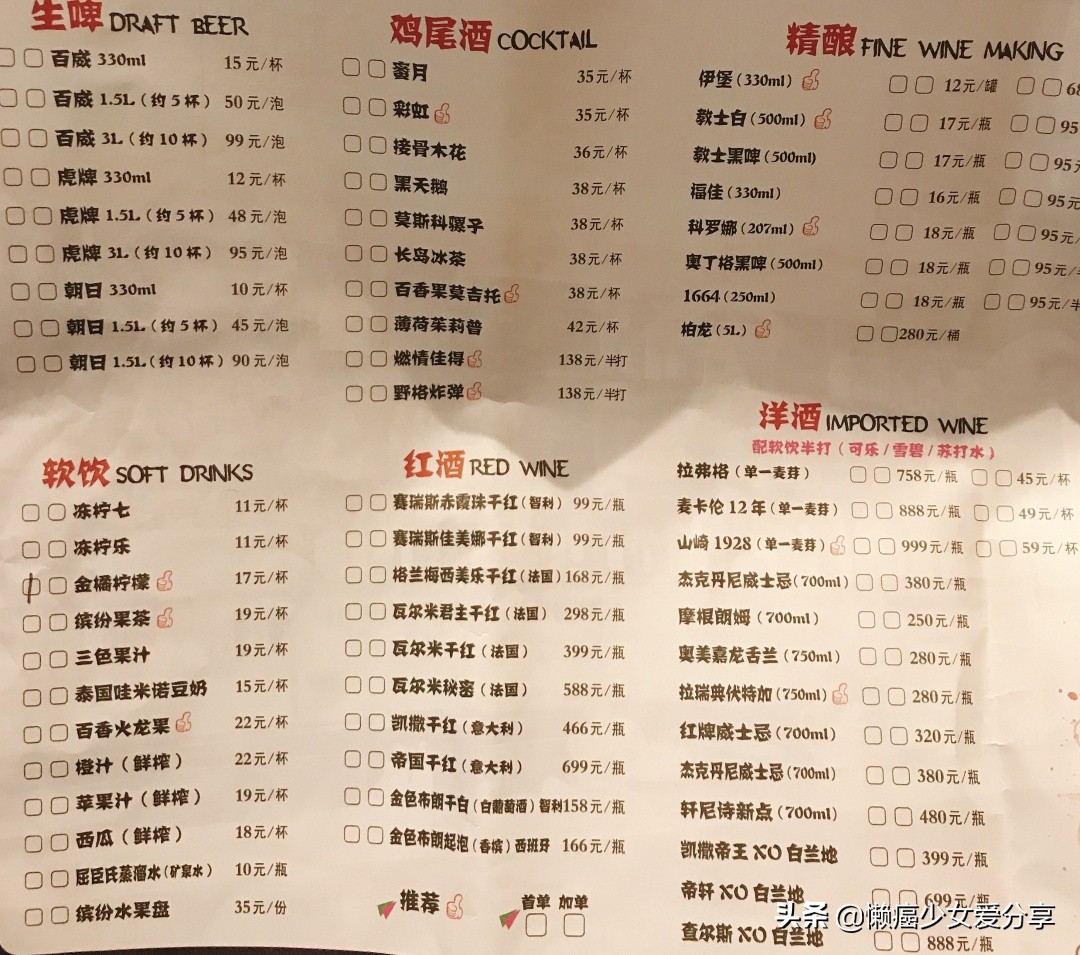 生啤 DRAFT BEER
百威 330ml 15元/杯
百威 1.5L(约5杯) 50元/泡
百威 3L(约10杯) 99元/泡
虎牌 330ml 12元/杯
虎牌 1.5L(约5杯) 48元/泡
虎牌 3L(约10杯) 95元/泡
朝日 330ml 10元/杯
朝日 1.5L(约5杯) 45元/泡
朝日 1.5L(约10杯) 90元/泡
鸡尾酒 COCKTAIL
蜜月 35元/杯
彩虹 35元/杯
接骨木花 36元/杯
黑天鹅 38元/杯
莫斯科骡子 38元/杯
长岛冰茶 38元/杯
百香果莫吉托 38元/杯
薄荷茱莉普 42元/杯
燃情佳得 138元/半打
野格炸弹 138元/半打
精酿 FINE WINE MAKING
伊堡(330ml) 12元/罐 68
教士白(500ml) 17元/瓶 95
教士黑啤(500ml) 17元/瓶 95元
福佳(330ml) 16元/瓶 95元
科罗娜(207ml) 18元/瓶 95元/
奥丁格黑啤(500ml) 18元/瓶 95元/
1664(250ml) 18元/瓶 95元/半
柏龙(5L) 280元/桶
软饮 SOFT DRINKS
冻柠七 11元/杯
冻柠乐 11元/杯
金橘柠檬 17元/杯
缤纷果茶 19元/杯
三色果汁 19元/杯
泰国哇米诺豆奶 15元/杯
百香火龙果 22元/杯
橙汁(鲜榨) 22元/杯
苹果汁(鲜榨) 19元/杯
西瓜(鲜榨) 18元/杯
屈臣氏蒸溜水(矿泉水) 10元/瓶
缤纷水果盘 35元/份
红酒 RED WINE
赛瑞斯赤霞珠干红(智利) 99元/瓶
赛瑞斯佳美娜干红(智利) 99元/瓶
格兰梅西美乐干红(法国) 168元/瓶
瓦尔米君主干红(法国) 298元/瓶
瓦尔米干红(法国) 399元/瓶
瓦尔米秘密(法国) 588元/瓶
凯撒干红(意大利) 466元/瓶
帝国干红(意大利) 699元/瓶
金色布朗干白(白葡萄酒)智利 158元/瓶
金色布朗起泡(香槟)西班牙 166元/瓶
推荐 首单 加单
洋酒 IMPORTED WINE
配软饮半打(可乐/雪碧/苏打水)
拉弗格(单一麦芽) 758元/瓶 45元/杯
麦卡伦12年(单一麦芽) 888元/瓶 49元/杯
山崎1928(单一麦芽) 999元/瓶 59元/杯
杰克丹尼威士忌(700ml) 380元/瓶
摩根朗姆(700ml) 250元/瓶
奥美嘉龙舌兰(750ml) 280元/瓶
拉瑞典伏特加(750ml) 280元/瓶
红牌威士忌(700ml) 320元/瓶
杰克丹尼威士忌(700ml) 380元/瓶
轩尼诗新点(700ml) 480元/瓶
凯撒帝王XO白兰地 399元/瓶
帝轩XO白兰地 699元/瓶
查尔斯XO白兰地 888元/瓶
头条 @懒癌少女爱分享